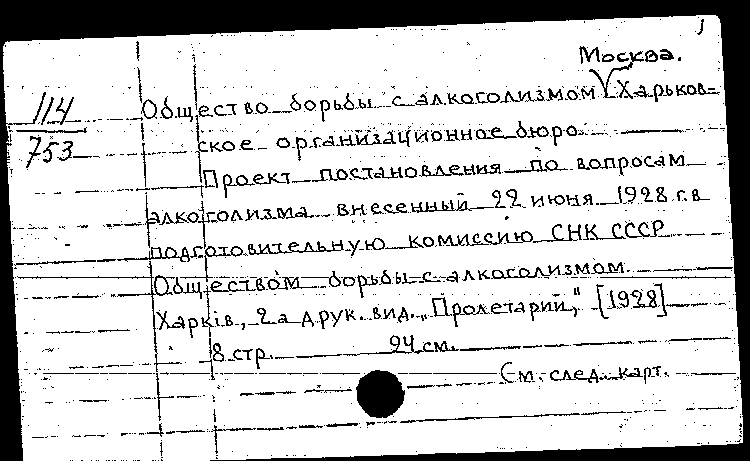 1
Москва.
114
753
Общество борьбы с алкоголизмом V Харьков-
ское организационное бюро.
Проект постановления по вопросам
алкоголизма внесенный 22 июня 1928 г. в
подготовительную комиссию СНК СССР
Обществом борьбы с алкоголизмом.
Харкiв, 2а друк. вид. „Пролетарий," [1928]
8 стр. 24 см.
См. след. карт.